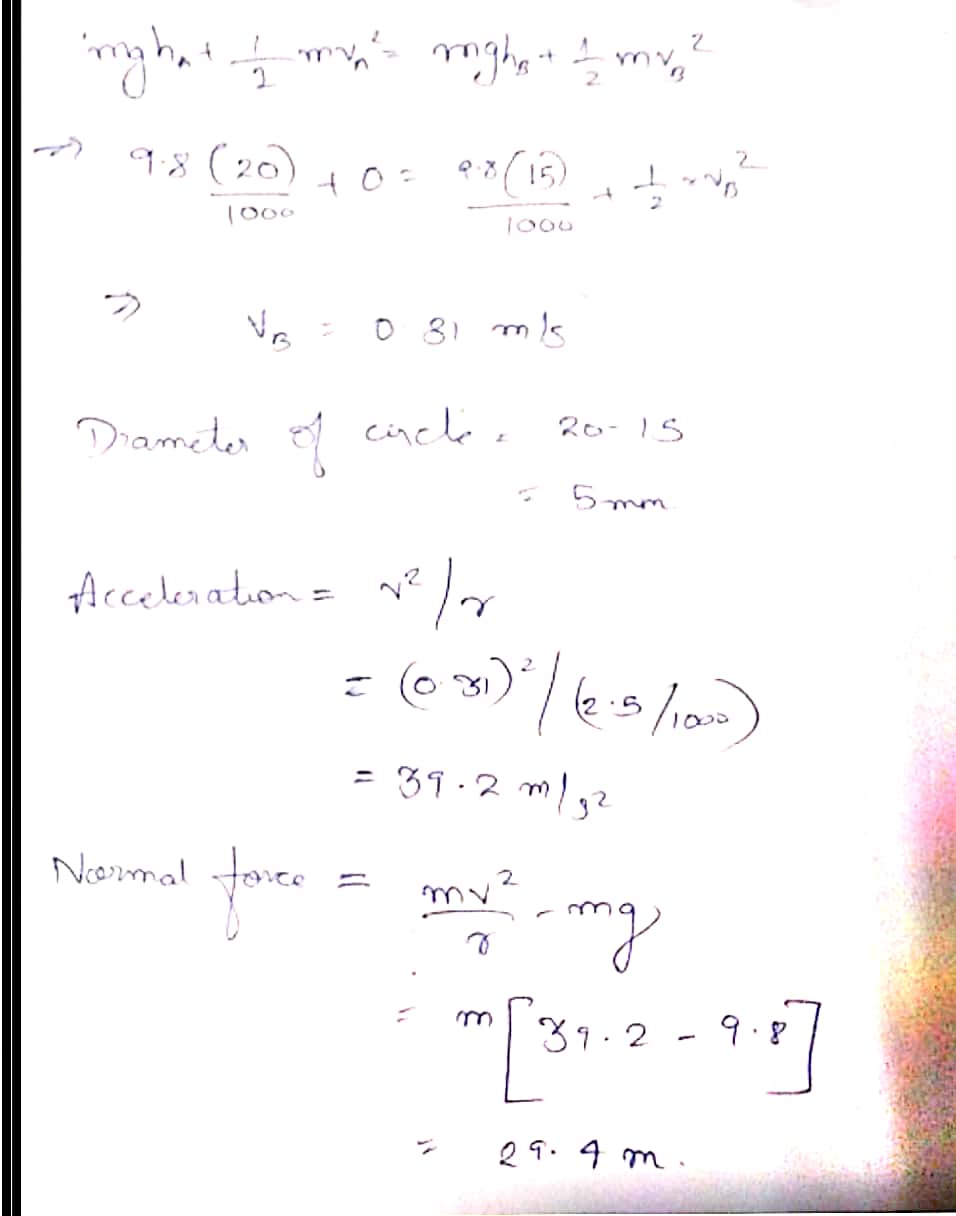 mgh_A + 1/2 mv_A² = mgh_B + 1/2 mv_B²
⇒ 9.8(20)/1000 + 0 = 9.8(15)/1000 + 1/2 × v_B²
⇒ v_B = 0.31 m/s
Diameter of circle = 20-15
= 5mm
Acceleration = v²/r
= (0.31)²/(2.5/1000)
= 39.2 m/s²
Normal force = mv²/r - mg
= m[39.2 - 9.8]
= 29.4 m.